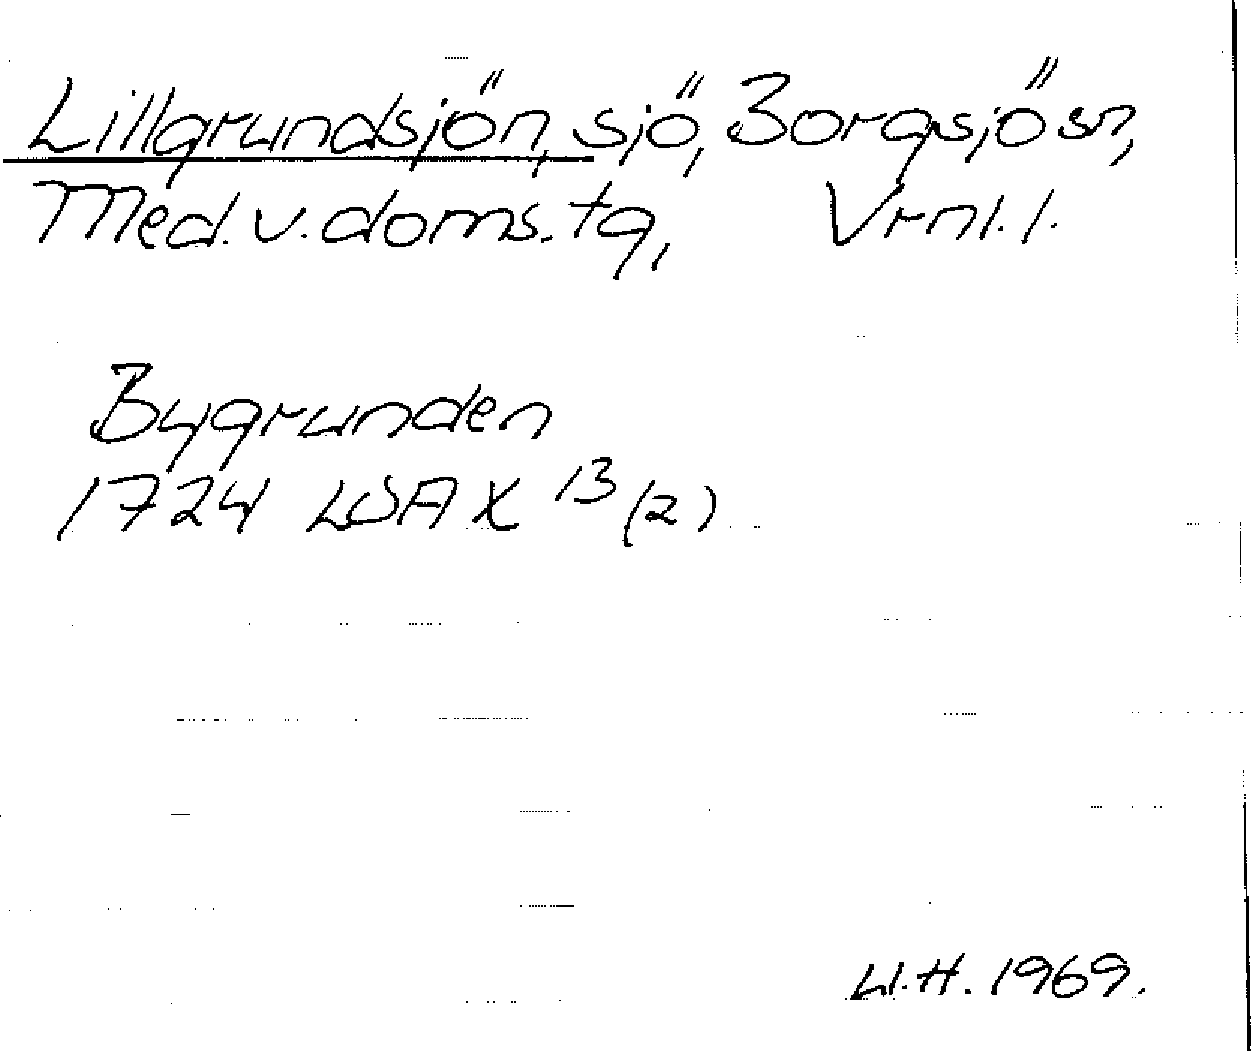 Lillgrundsjön, sjö, Borgsjö sn,
Med.v.doms.tg, Vrnl.l.
Bygrunden
1724 LSA X 13(2)
U.H. 1969.